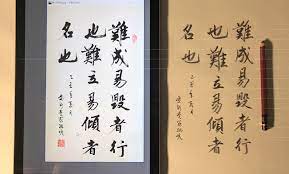 難成易毀者行
也難立易傾者
名也
難成易毀者行
也難立易傾者
名也